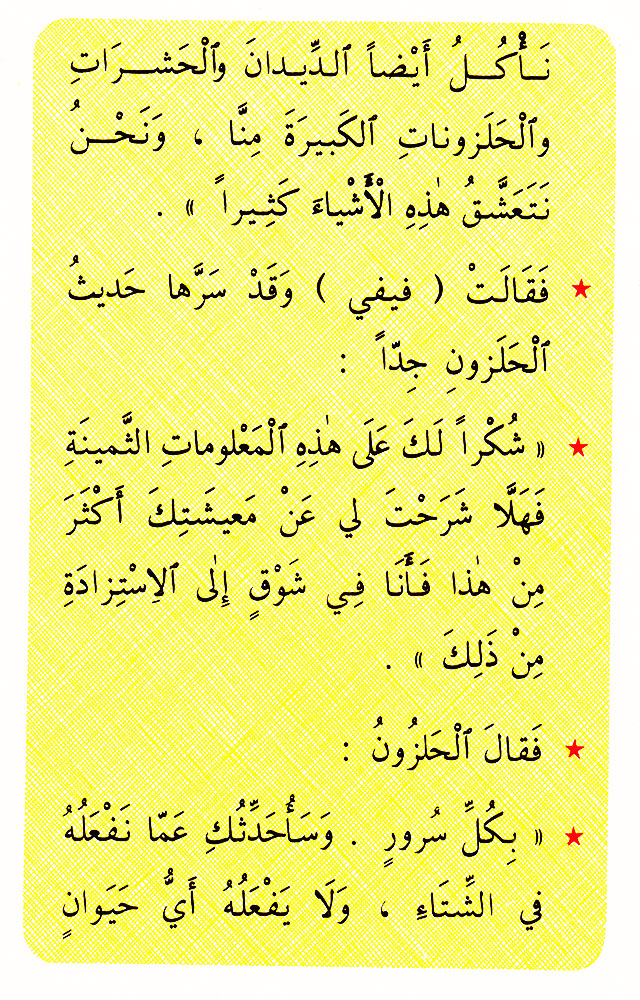 نَــأْكُــلُ أَيْضاً ٱلدِّيدانَ وٱلْحَشــــراتِ
وٱلْحَلَزوناتِ ٱلكَبيرَةَ مِنَّا ، وَنَحْــنُ
نَتَعَشَّقُ هٰذِهِ الْأَشْياءَ كَثِـيراً » .
★ فَقَالَتْ ( فيفي ) وَقَدْ سَرَّها حَديثُ
ٱلْحَلَزونِ جِدّاً :
★ « شُكْراً لَكَ عَلَى هٰذِهِ ٱلْمَعْلوماتِ الثَّمينَةِ
فَهَلَّا شَرَحْتَ لي عَنْ مَعيشَتِكَ أَكْثَرَ
مِنْ هٰذا فَأَنَا فِي شَوْقٍ إِلٰى ٱلاِسْتِزادَةِ
مِنْ ذَلِكَ » .
★ فَقالَ ٱلْحَلزُونُ :
★ « بِكُلِّ سُرورٍ . وَسَأُحَدِّثُكِ عَمّا نَفْعَلُهُ
في الشِّتَاءِ ، وَلَا يَفْعَلُهُ أَيُّ حَيَوانٍ